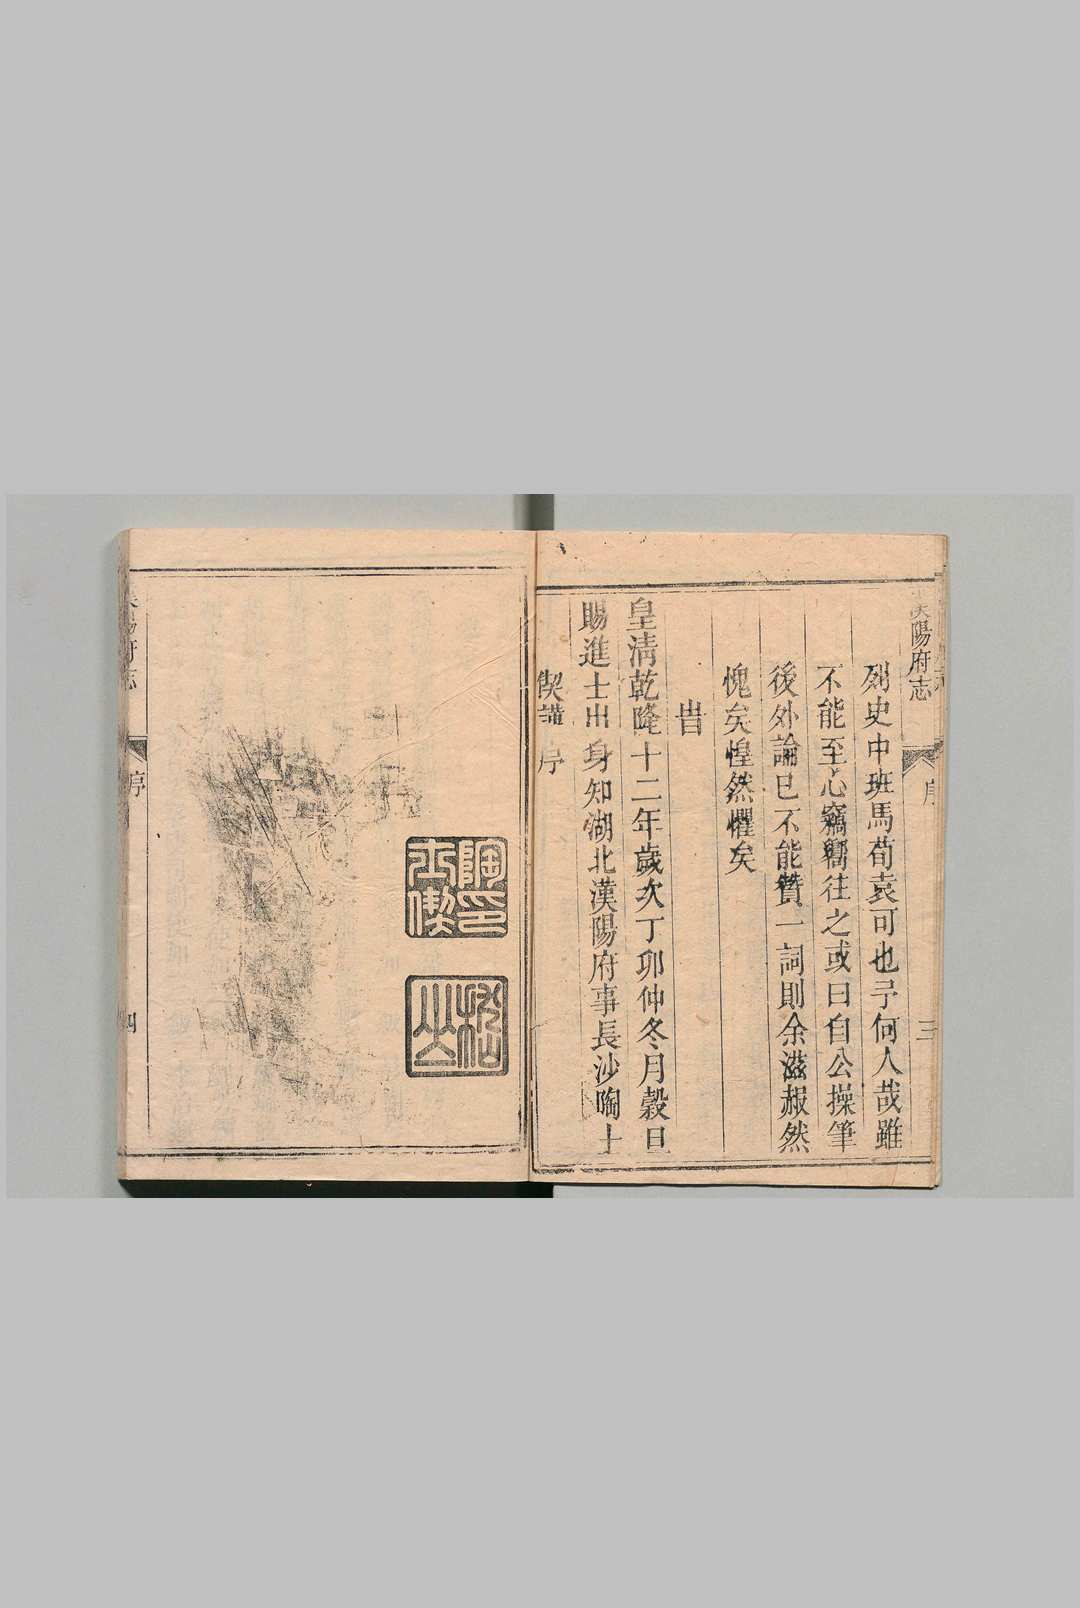 漢陽府志
序
三
列史中班馬荀袁可也予何人哉雖
不能至心竊嚮往之或曰自公操筆
後外論已不能贊一詞則余滋赧然
愧矣惶然懼矣
旹
皇清乾隆十二年歲次丁卯仲冬月穀旦
賜進士出身知湖北漢陽府事長沙陶士
偰謹序
陶士偰印
陽府志
序
四